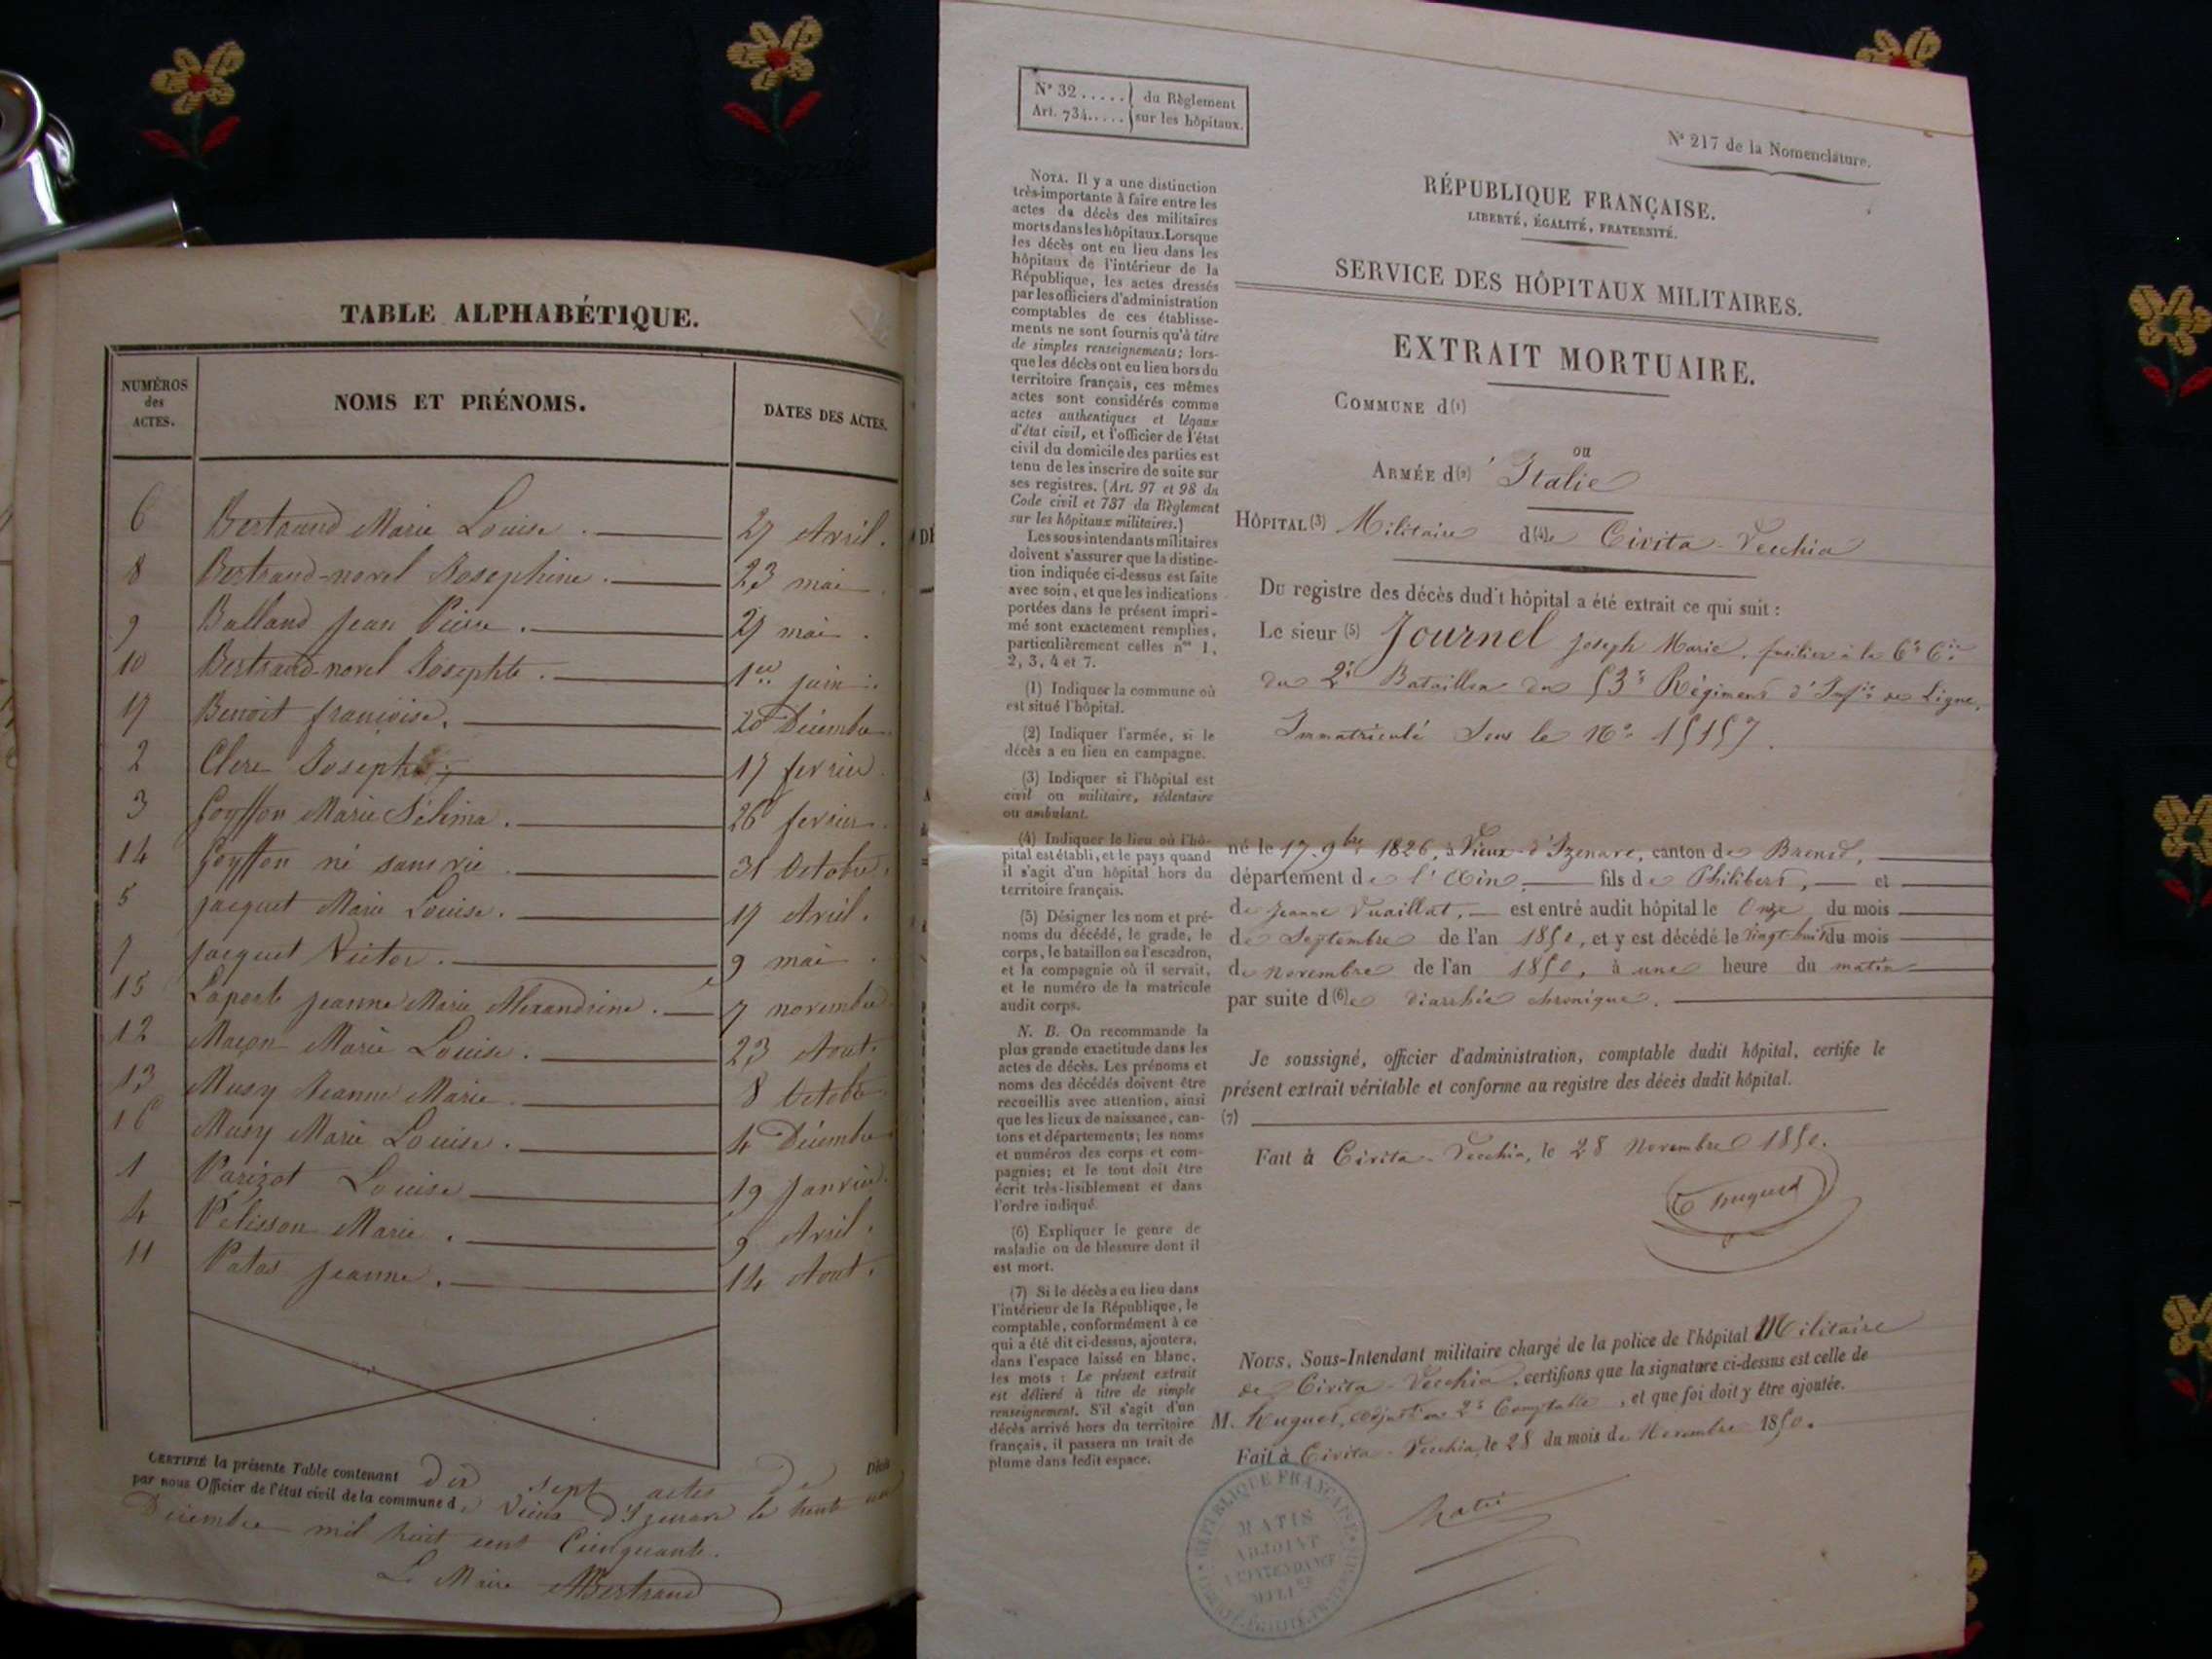 TABLE ALPHABÉTIQUE.
NUMÉROS des ACTES. NOMS ET PRÉNOMS. DATES DES ACTES.
6 Bertrand Marie Louise. 27 Avril.
8 Bertrand-novel Josephine. 23 mai.
9 Balland Jean Pierre. 27 mai.
10 Bertrand-novel Josephte. 1er juin.
17 Benoit françoise. 20 Décembre
2 Clerc Josephte 17 fevrier.
3 Goyffon Marie Sélima. 26 fevrier.
14 Goyffon né sans vie 31 Octobre.
5 Jacquet Marie Louise. 17 Avril.
7 Jacquet Victor. 9 mai.
15 Laporte Jeanne Marie Alexandrine. 7 novembre
12 Maçon Marie Louise. 23 Aout.
13 Musy Jeanne Marie 8 Octobre
16 Musy Marie Louise. 4 Décembre
1 Parizot Louise 19 Janvier.
4 Pelisson Marie. 9 Avril.
11 Patas Jeanne. 14 Aout.
CERTIFIÉ la présente Table contenant dix sept actes de Décès
par nous Officier de l'état civil de la commune de Vieux d'Izenave le trente un
Décembre mil huit cent Cinquante.
Le Maire Bertrand
N° 32..... du Règlement
Art. 734..... sur les hôpitaux.
N° 217 de la Nomenclature.
RÉPUBLIQUE FRANÇAISE.
LIBERTÉ, ÉGALITÉ, FRATERNITÉ.
SERVICE DES HÔPITAUX MILITAIRES.
EXTRAIT MORTUAIRE.
COMMUNE d(1)
ou
ARMÉE d(2)' Italie
HÔPITAL (3) Militaire d(4)e Civita-Vecchia
Du registre des décès dudit hôpital a été extrait ce qui suit :
Le sieur (5) Journel Joseph Marie, fusilier à la 6e Cie
du 2e Bataillon du 53e Régiment d'Infie de Ligne,
Immatriculé Sous le No 15157.
né le 17 9bre 1826, à Vieux-d'Izenave, canton de Brenod,
département de l'Ain fils de Philibert, et
de Jeanne Vuaillat, est entré audit hôpital le Onze du mois
de Septembre de l'an 1850, et y est décédé le vingt-huit du mois
de novembre de l'an 1850, à une heure du matin
par suite d(6)e diarrhée chronique.
Je soussigné, officier d'administration, comptable dudit hôpital, certifie le
présent extrait véritable et conforme au registre des décès dudit hôpital.
(7)
Fait à Civita-Vecchia, le 28 Novembre 1850.
Hugues
Nous, Sous-Intendant militaire chargé de la police de l'hôpital Militaire
de Civita-Vecchia, certifions que la signature ci-dessus est celle de
M. Hugues, adjud. en 2e Comptable, et que foi doit y être ajoutée.
Fait à Civita-Vecchia, le 28 du mois de Novembre 1850.
Matis
RÉPUBLIQUE FRANÇAISE
MATIS
ADJOINT
A L'INTENDANCE
MILIRE
LIBERTÉ, ÉGALITÉ, FRATERNITÉ
NOTA. Il y a une distinction
très-importante à faire entre les
actes de décès des militaires
morts dans les hôpitaux. Lorsque
les décès ont eu lieu dans les
hôpitaux de l'intérieur de la
République, les actes dressés
par les officiers d'administration
comptables de ces établisse-
ments ne sont fournis qu'à titre
de simples renseignements; lors-
que les décès ont eu lieu hors du
territoire français, ces mêmes
actes sont considérés comme
actes authentiques et légaux
d'état civil, et l'officier de l'état
civil du domicile des parties est
tenu de les inscrire de suite sur
ses registres. (Art. 97 et 98 du
Code civil et 737 du Règlement
sur les hôpitaux militaires.)
Les sous-intendants militaires
doivent s'assurer que la distinc-
tion indiquée ci-dessus est faite
avec soin, et que les indications
portées dans le présent impri-
mé sont exactement remplies,
particulièrement celles nos 1,
2, 3, 4 et 7.
(1) Indiquer la commune où
est situé l'hôpital.
(2) Indiquer l'armée, si le
décès a eu lieu en campagne.
(3) Indiquer si l'hôpital est
civil ou militaire, sédentaire
ou ambulant.
(4) Indiquer le lieu où l'hô-
pital est établi, et le pays quand
il s'agit d'un hôpital hors du
territoire français.
(5) Désigner les nom et pré-
noms du décédé, le grade, le
corps, le bataillon ou l'escadron,
et la compagnie où il servait,
et le numéro de la matricule
audit corps.
N. B. On recommande la
plus grande exactitude dans les
actes de décès. Les prénoms et
noms des décédés doivent être
recueillis avec attention, ainsi
que les lieux de naissance, can-
tons et départements; les noms
et numéros des corps et com-
pagnies; et le tout doit être
écrit très-lisiblement et dans
l'ordre indiqué.
(6) Expliquer le genre de
maladie ou de blessure dont il
est mort.
(7) Si le décès a eu lieu dans
l'intérieur de la République, le
comptable, conformément à ce
qui a été dit ci-dessus, ajoutera,
dans l'espace laissé en blanc,
les mots : Le présent extrait
est délivré à titre de simple
renseignement. S'il s'agit d'un
décès arrivé hors du territoire
français, il passera un trait de
plume dans ledit espace.